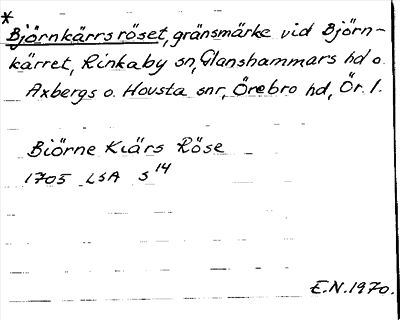 *
Björnkärrsröset, gränsmärke vid Björn-
kärret, Rinkaby sn, Glanshammars hd o.
Axbergs o. Hovsta snr, Örebro hd, Ör. l.
Biörne Kiärs Röse
1705 LSA S 14
E.N. 1970.